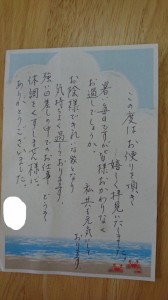 この度はお便りを頂き、
嬉しく拝見いたしました。
暑い毎日ですが皆様おかわりなく
お過しでしょうか。
私共も元気にして
おります
お陰様できれいな家となり
気持よく過しております。
強い日差しの中でのお仕事、どうか
体調をくずしませぬ様に、
ありがとうございました。